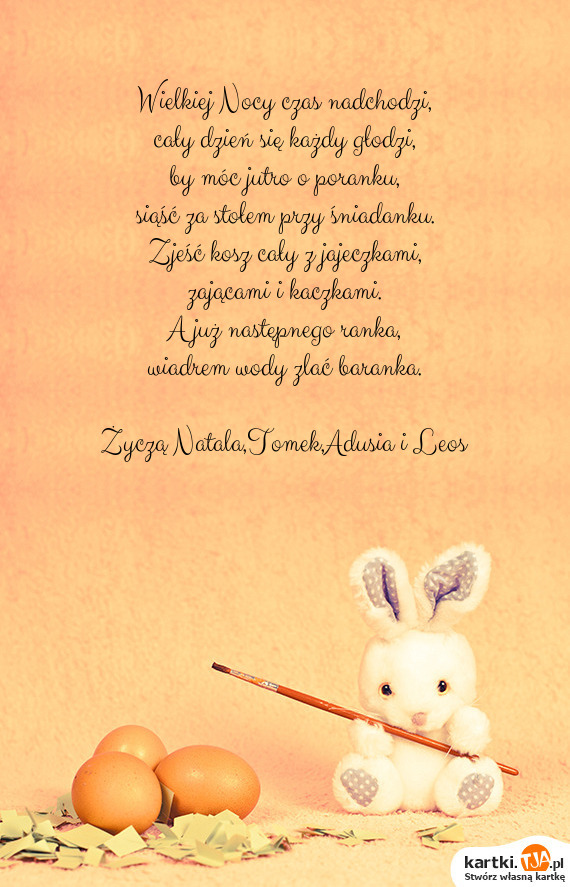 Wielkiej Nocy czas nadchodzi,
cały dzień się każdy głodzi,
by móc jutro o poranku,
siąść za stołem przy śniadanku.
Zjeść kosz cały z jajeczkami,
zającami i kaczkami.
A już następnego ranka,
wiadrem wody zlać baranka.
Życzą Natala,Tomek,Adusia i Leos
kartki.TJA.pl
Stwórz własną kartkę